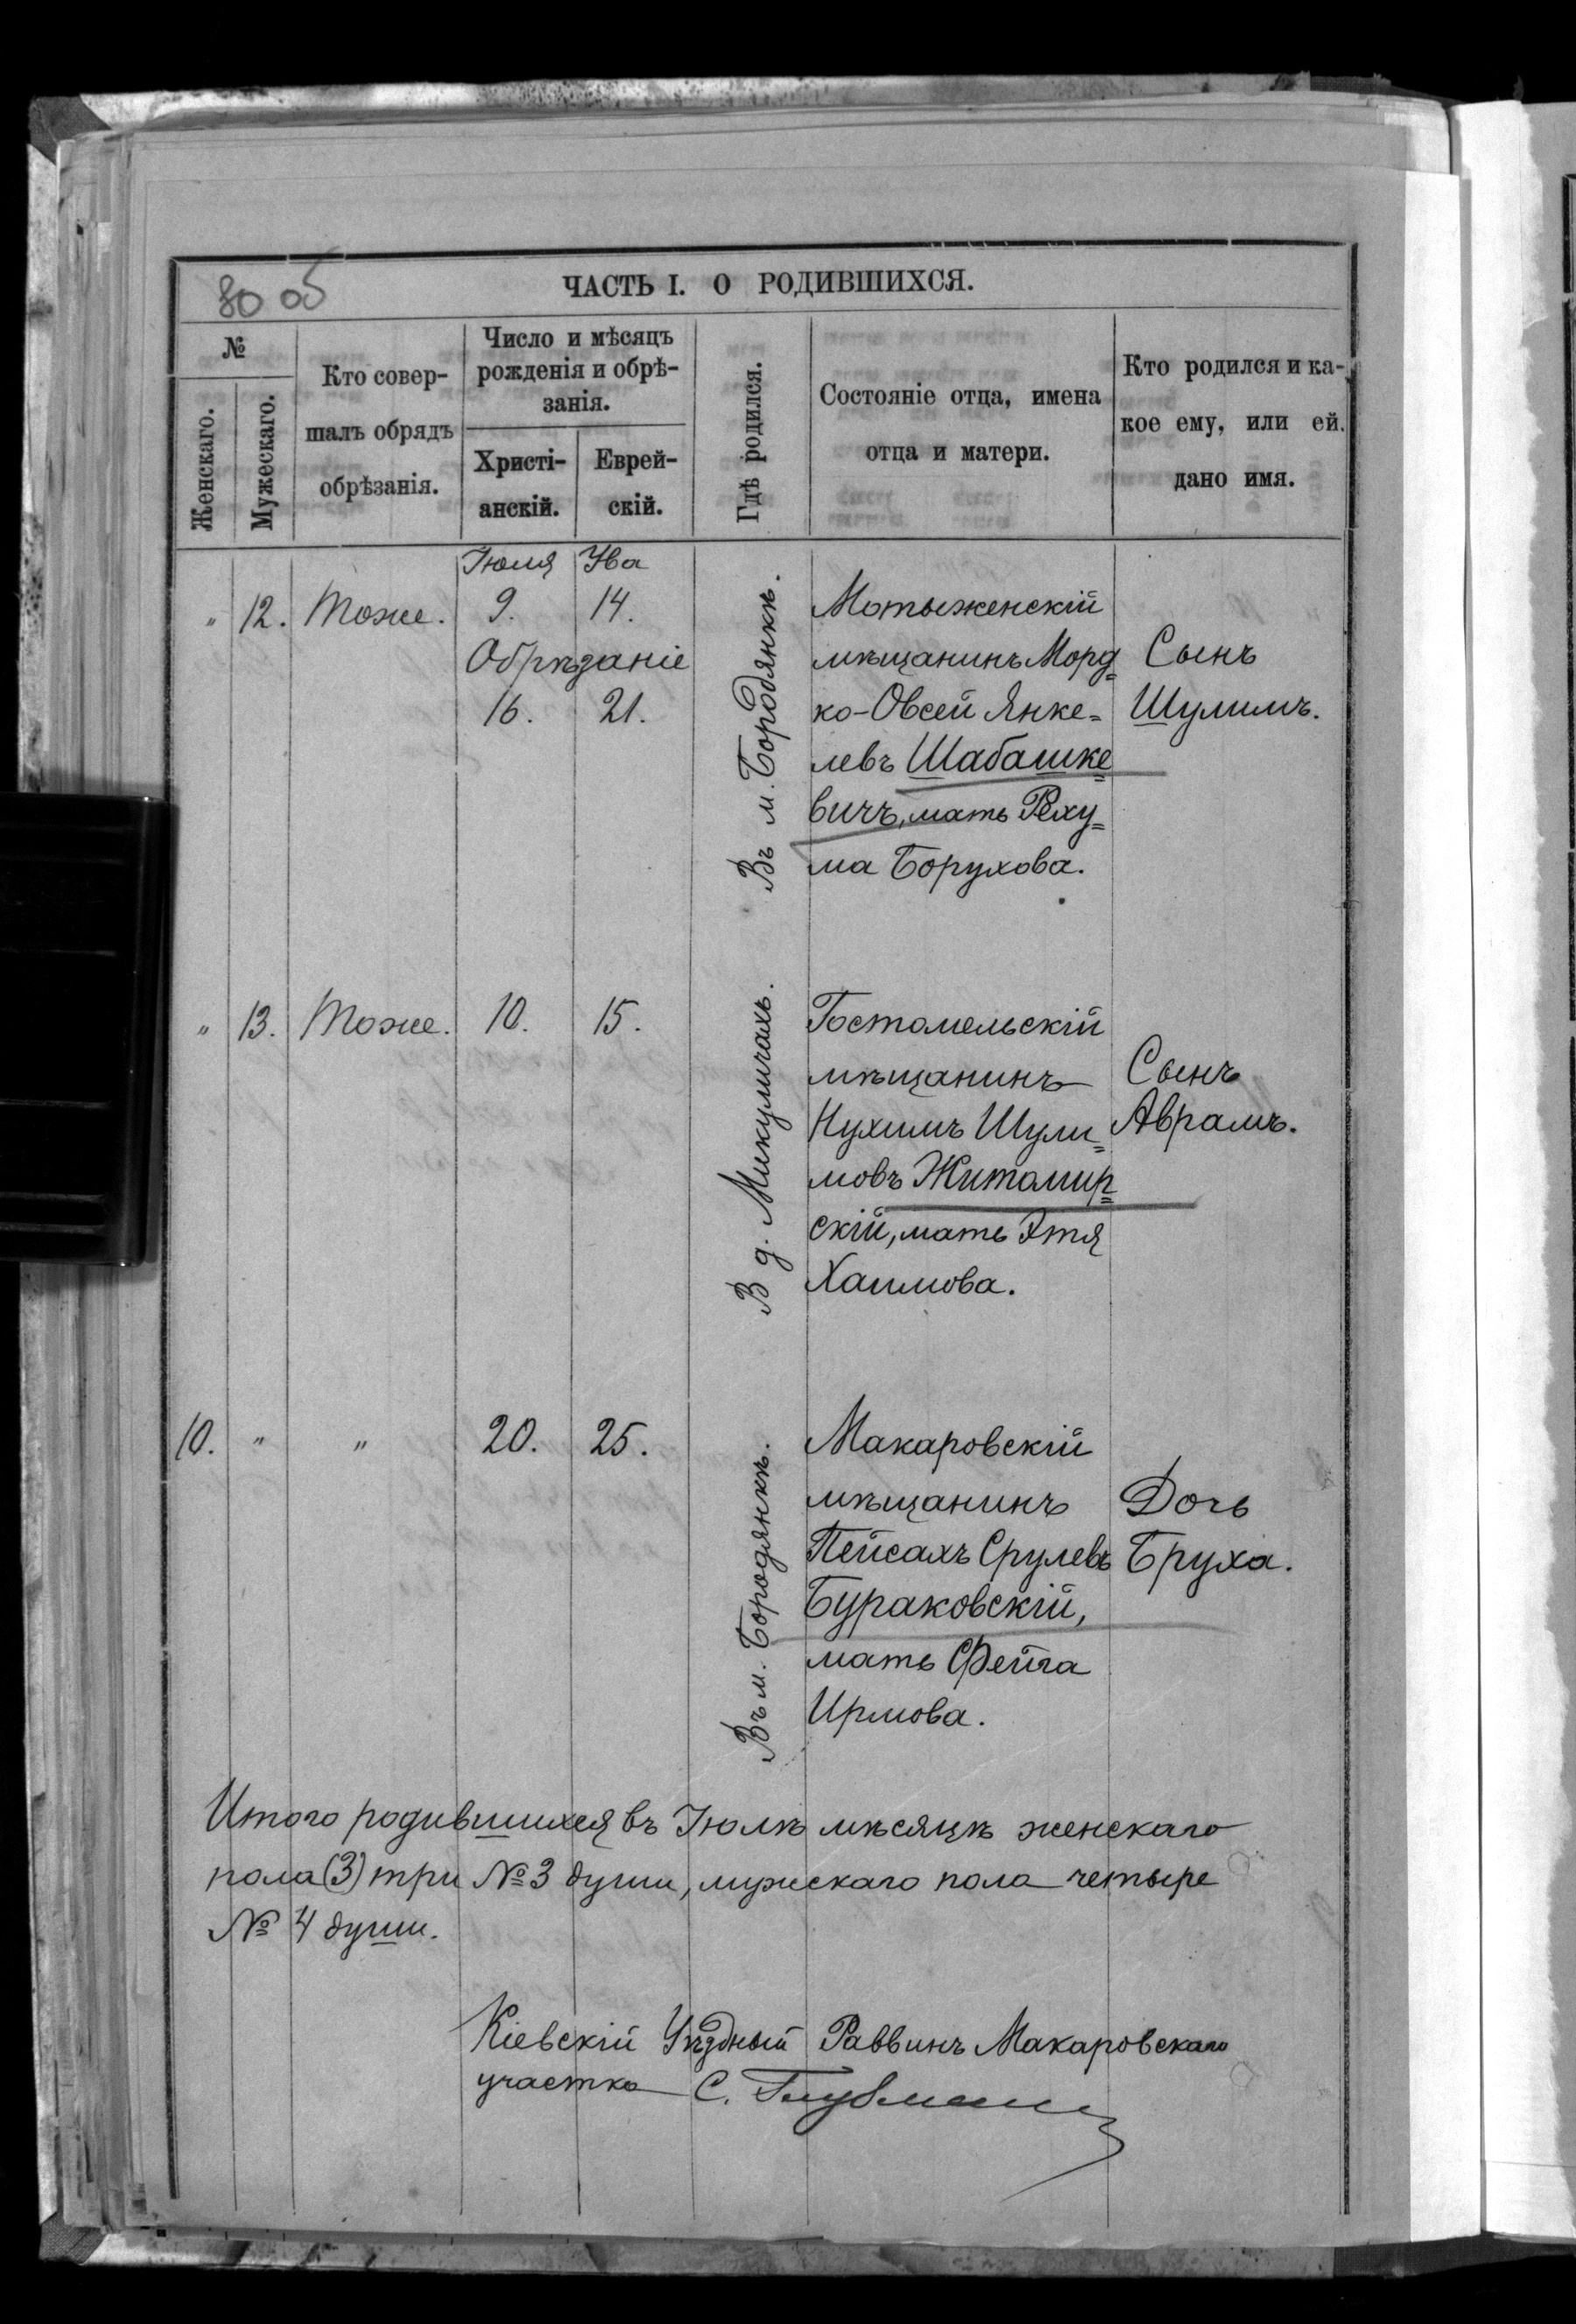 80 об
ЧАСТЬ I. О РОДИВШИХСЯ.
№
Женскаго.
Мужескаго.
Кто совер-
шалъ обрядъ
обрѣзанія.
Число и мѣсяцъ
рожденія и обрѣ-
занія.
Христі-
анскій.
Еврей-
скій.
Гдѣ родился.
Состояніе отца, имена
отца и матери.
Кто родился и ка-
кое ему, или ей.
дано имя.
Іюля Ува
„ 12. Тоже. 9. 14.
Обрѣзаніе
16. 21.
Въ м. Бородянкѣ.
Мотыженскій
мѣщанинъ Морд=
ко-Овсей Янке=
левъ Шабашке=
вичъ, мать Реху=
ма Борухова.
Сынъ
Шулимъ.
„ 13. Тоже. 10. 15.
В д. Микуличахъ.
Гостомельскій
мѣщанинъ
Нухимъ Шули=
мовъ Житомир=
скій, мать Этя
Хаимова.
Сынъ
Аврамъ.
10. „ „ 20. 25.
Въ м. Бородянкѣ.
Макаровскій
мѣщанинъ
Пейсахъ Срулевъ
Бураковскій,
мать Фейга
Ирмова.
Дочь
Бруха.
Итого родившихся въ Іюлѣ мѣсяцѣ женскаго
пола (3) три № 3 души, мужскаго пола четыре
№ 4 души.
Кіевскій Уѣздный Раввинъ Макаровскаго
участка С.